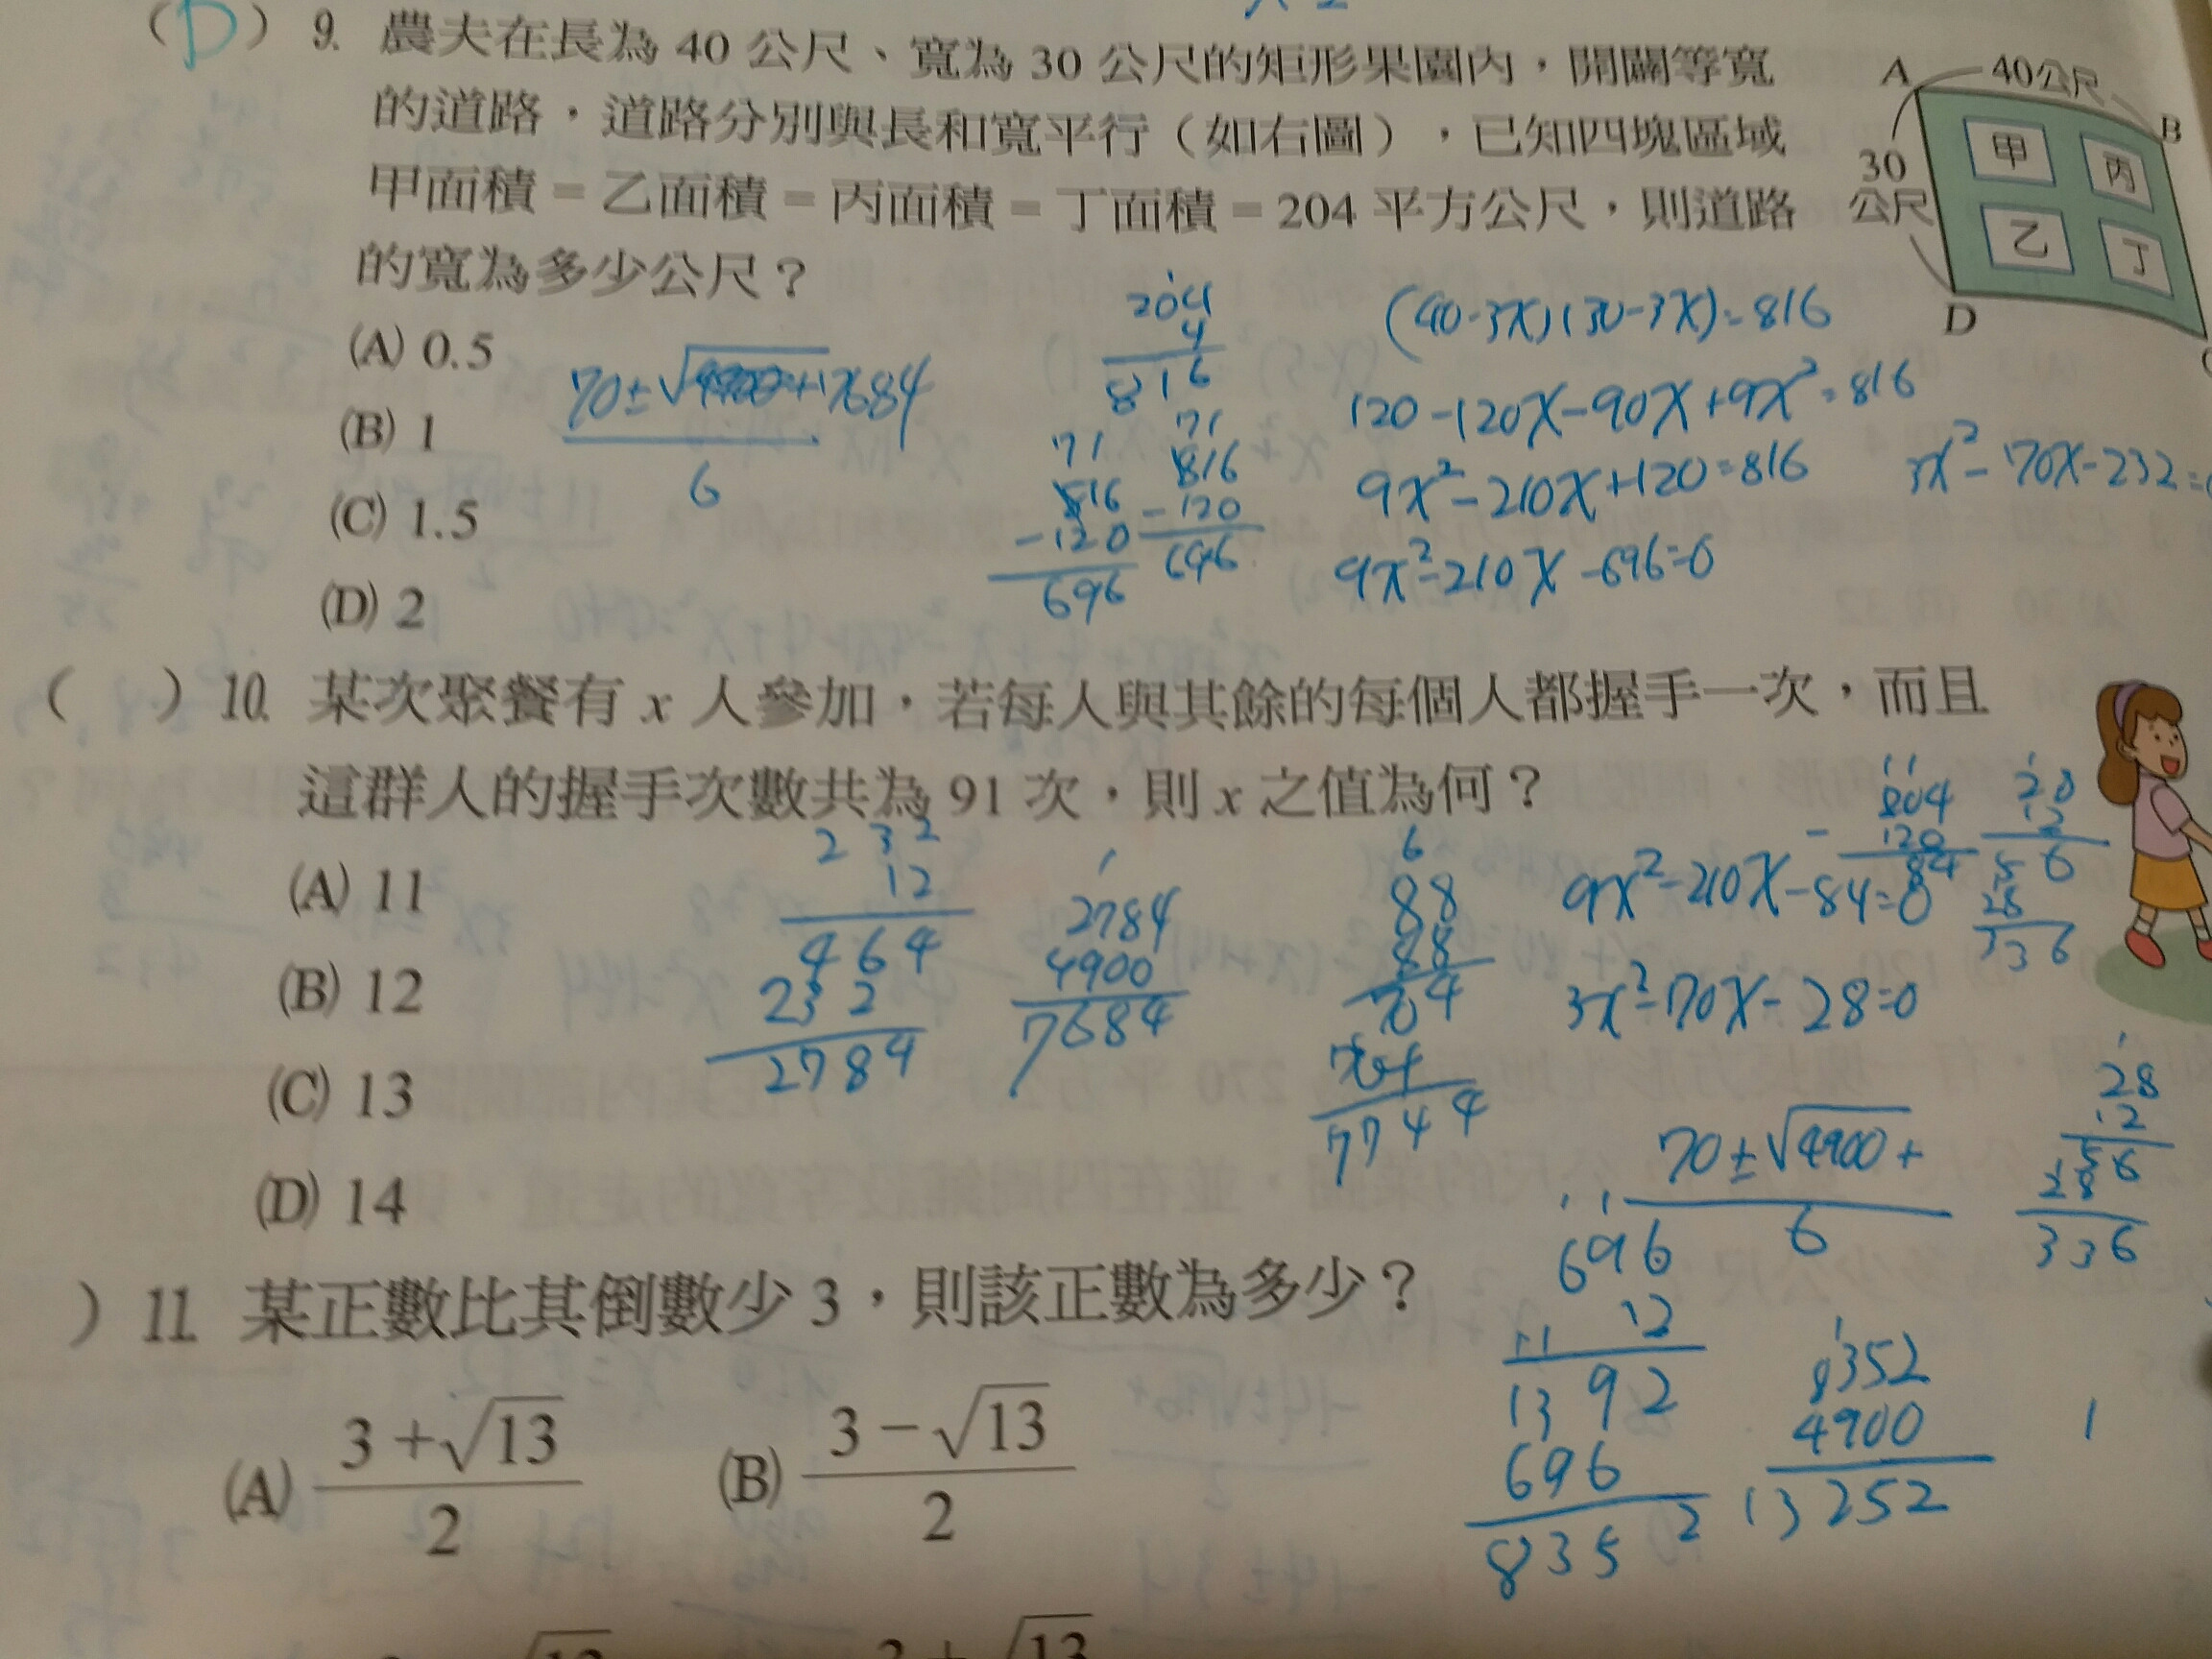 (D) 9. 農夫在長為 40 公尺、寬為 30 公尺的矩形果園內，開闢等寬
的道路，道路分別與長和寬平行（如右圖），已知四塊區域
甲面積＝乙面積＝丙面積＝丁面積＝204 平方公尺，則道路
的寬為多少公尺？
(A) 0.5
(B) 1
(C) 1.5
(D) 2
A
40公尺
B
30
公尺
甲
丙
乙
丁
D
204
4
816
(40-3x)(30-3x)=816
120-120x-90x+9x²=816
9x²-210x+120=816
3x²-70x-232=
9x²-210x-696=0
70±√
7684
6
71
816
-120
696
71
816
-120
696
( ) 10. 某次聚餐有 x 人參加，若每人與其餘的每個人都握手一次，而且
這群人的握手次數共為 91 次，則 x 之值為何？
(A) 11
(B) 12
(C) 13
(D) 14
232
12
464
232
2784
2784
4900
7684
6
88
88
704
704
7744
11
804
120
84
9x²-210x-84=0
3x²-70x-28=0
56
28
336
70±√4900+
6
28
12
56
28
336
) 11. 某正數比其倒數少 3，則該正數為多少？
(A) 3+√13
2
(B) 3-√13
2
11
696
12
1392
696
8352
1
8352
4900
13252
1
√13
3+√13